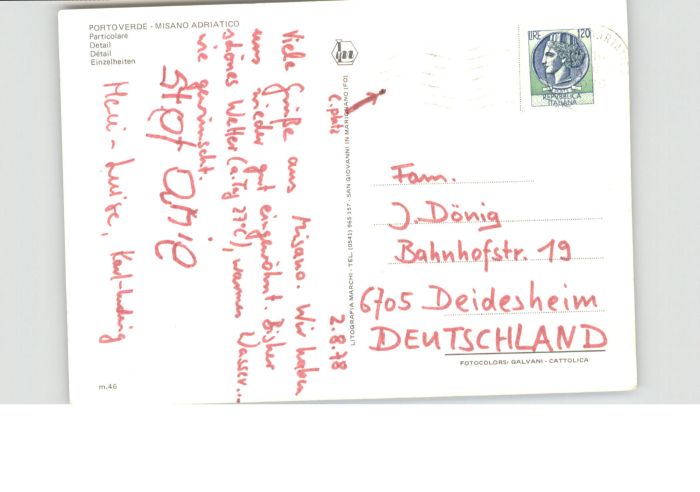 PORTOVERDE - MISANO ADRIATICO
Particolare
Detail
Détail
Einzelheiten
LIRE 120
REPUBBLICA
ITALIANA
2.8.78
Viele Grüße aus Misano. Wir haben
uns wieder gut eingewöhnt. Bisher
schönes Wetter (a.Tag 27°C), warmes Wasser...
wie gewünscht.
Stefanie
Karl-Ludwig
C.platz
Fam.
J. Dönig
Bahnhofstr. 19
6705 Deidesheim
DEUTSCHLAND
LITOGRAFIA MARCHI - TEL. (0541) 965 157 - SAN GIOVANNI IN MARIGNANO (FO)
FOTOCOLORS: GALVANI - CATTOLICA
m.46